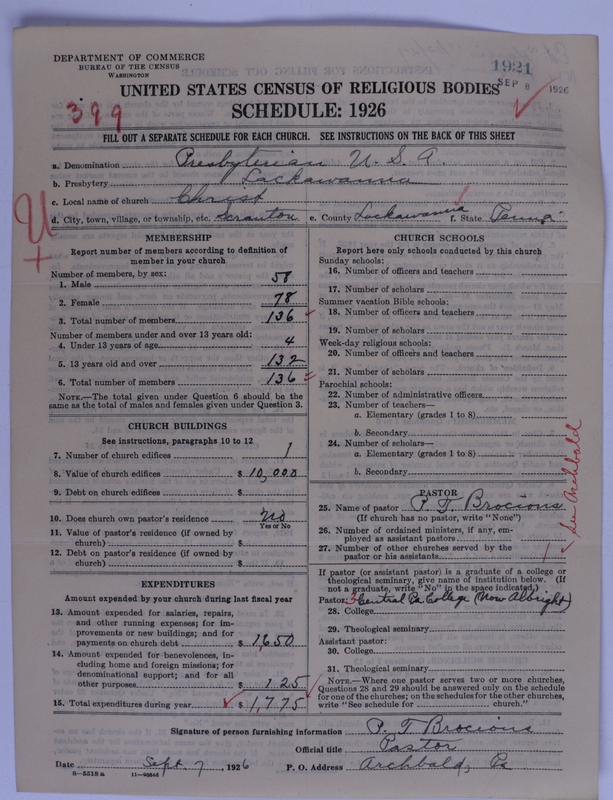 DEPARTMENT OF COMMERCE
BUREAU OF THE CENSUS
WASHINGTON
1921
SEP 8 1926
UNITED STATES CENSUS OF RELIGIOUS BODIES
SCHEDULE: 1926
399
FILL OUT A SEPARATE SCHEDULE FOR EACH CHURCH. SEE INSTRUCTIONS ON THE BACK OF THIS SHEET
a. Denomination Presbyterian U.S.A.
b. Presbytery Lackawanna
c. Local name of church Christ
d. City, town, village, or township, etc. Scranton e. County Lackawanna f. State Penna
U
+
MEMBERSHIP
Report number of members according to definition of
member in your church
Number of members, by sex:
1. Male 58
2. Female 78
3. Total number of members 136
Number of members under and over 13 years old:
4. Under 13 years of age 4
5. 13 years old and over 132
6. Total number of members 136
NOTE.—The total given under Question 6 should be
same as the total of males and females given under Question 3.
CHURCH BUILDINGS
See instructions, paragraphs 10 to 12
7. Number of church edifices 1
8. Value of church edifices $ 10,000
9. Debt on church edifices $
10. Does church own pastor's residence No
Yes or No
11. Value of pastor's residence (if owned by
church) $
12. Debt on pastor's residence (if owned by
church) $
EXPENDITURES
Amount expended by your church during last fiscal year
13. Amount expended for salaries, repairs,
and other running expenses; for im-
provements or new buildings; and for
payments on church debt $ 1,650
14. Amount expended for benevolences, in-
cluding home and foreign missions; for
denominational support; and for all
other purposes $ 125
15. Total expenditures during year $ 1,775
CHURCH SCHOOLS
Report here only schools conducted by this church
Sunday schools:
16. Number of officers and teachers
17. Number of scholars
Summer vacation Bible schools:
18. Number of officers and teachers
19. Number of scholars
Week-day religious schools:
20. Number of officers and teachers
21. Number of scholars
Parochial schools:
22. Number of administrative officers
23. Number of teachers—
a. Elementary (grades 1 to 8)
b. Secondary
24. Number of scholars—
a. Elementary (grades 1 to 8)
b. Secondary
PASTOR
25. Name of pastor P. T. Brocious
(If church has no pastor, write "None")
26. Number of ordained ministers, if any, em-
ployed as assistant pastors
27. Number of other churches served by the
pastor or his assistants 1
See Archbald
If pastor (or assistant pastor) is a graduate of a college or
theological seminary, give name of institution below. (If
not a graduate, write "No" in the space indicated.)
Pastor: Central Pa College (Now Albright)
28. College
29. Theological seminary
Assistant pastor:
30. College
31. Theological seminary
NOTE.—Where one pastor serves two or more churches,
Questions 28 and 29 should be answered only on the schedule
for one of the churches; on the schedules for the other churches,
write "See schedule for church."
Signature of person furnishing information P. T. Brocious
Official title Pastor
Date Sept. 7, 1926 P. O. Address Archbald, Pa
8—5518 a 11—98